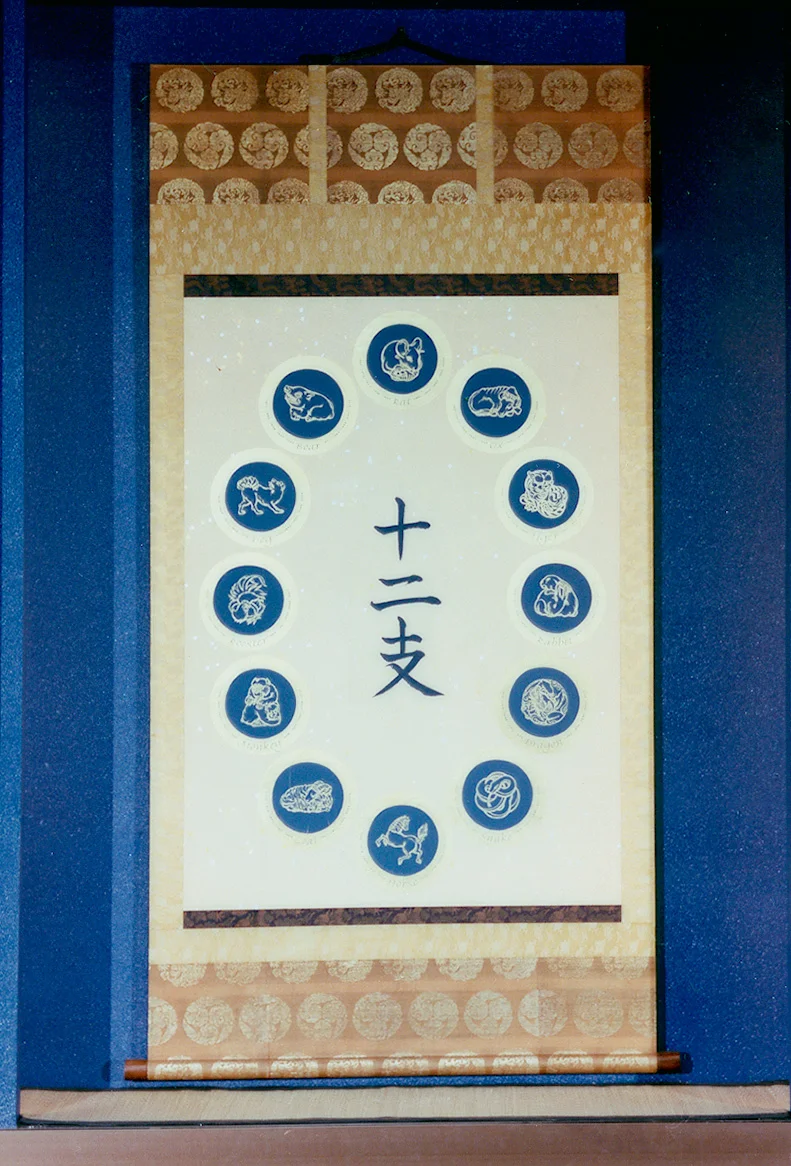 十二支
Rat
Ox
Tiger
Rabbit
Dragon
Snake
Horse
Monkey
Rooster
Boar